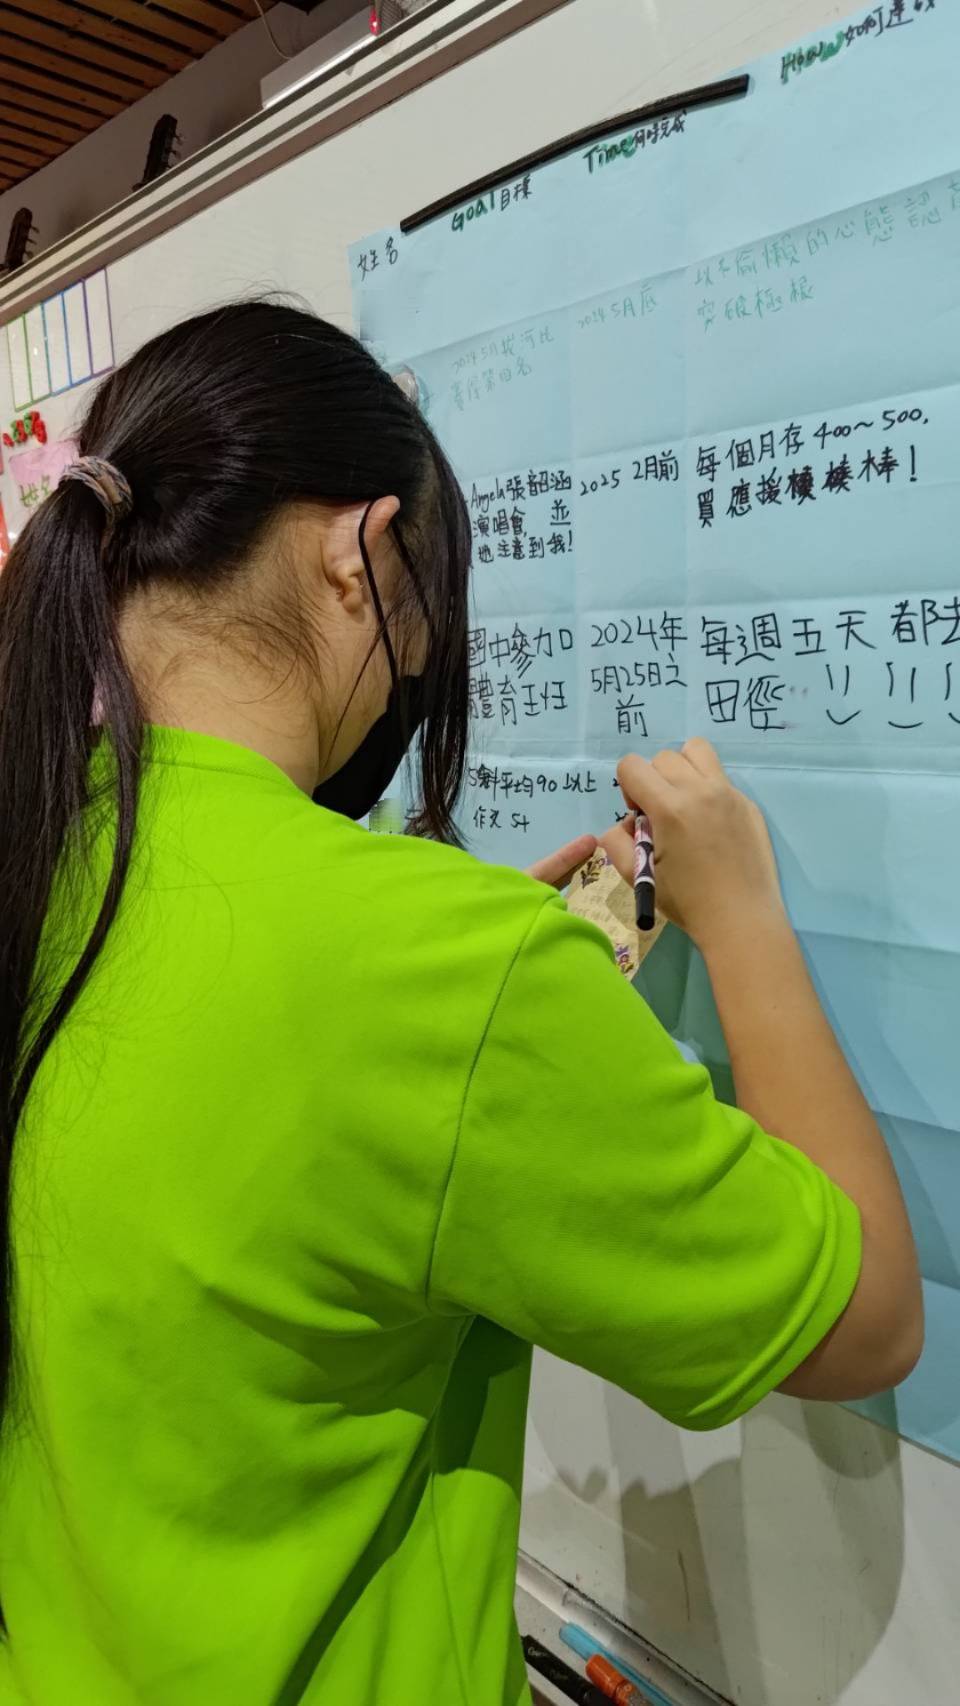 How 如何達成
Time 何時完成
Goal 目標
姓名
以不偷懶的心態認
突破極限
2024 5月底
2024 5月拔河比
賽
Angela 張韶涵
演唱會, 並
她注意到我!
2025 2月前
每個月存 400~500,
買應援棒!
國中參加
體育班
2024年
5月25日之
前
每週五天都去
田徑
5科平均90以上
作文 5+